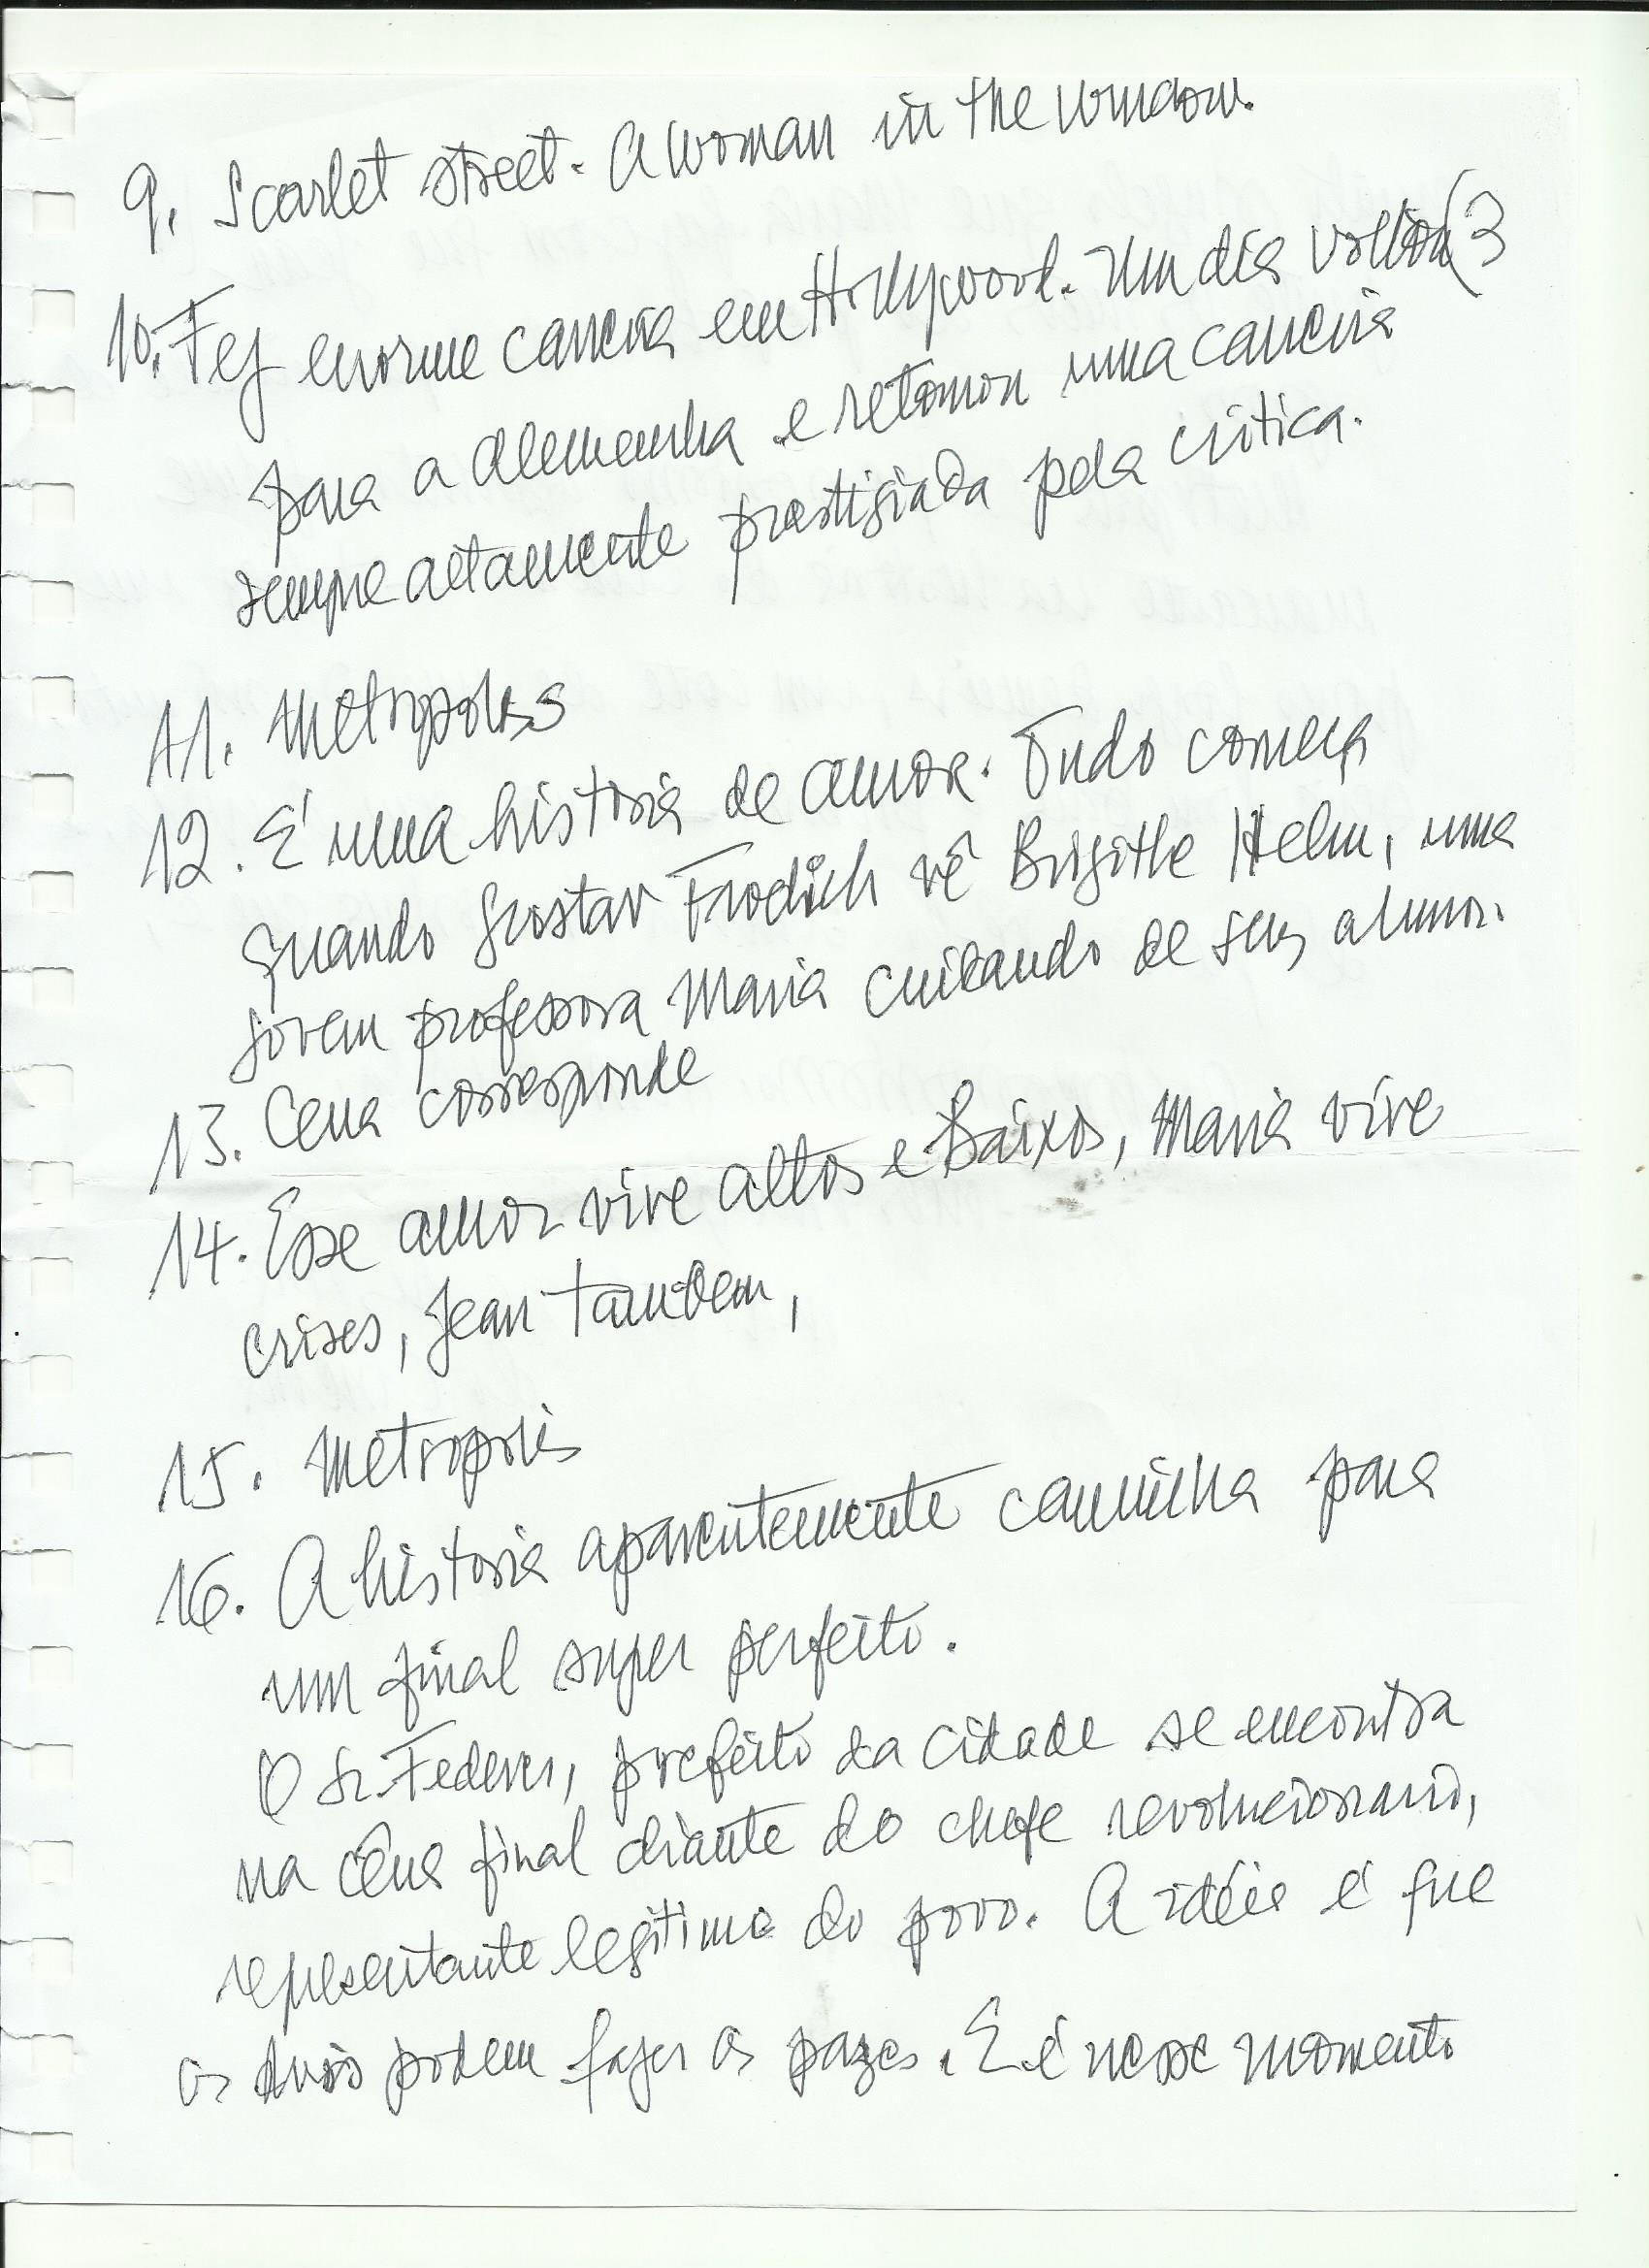 9. Scarlet street. A woman in the window.
10. Fez enorme carreira em Hollywood. Um dia voltou (3
para a Alemanha e retomou uma carreira
sempre altamente prestigiada pela critica.
11. Metropolis
12. É uma historia de amor. Tudo começa
quando Gostav Frodich vê Brigitte Helm, uma
jovem professora Maria cuidando de seus alunos.
13. Cena corresponde
14. Esse amor vive altos e baixos, Maria vive
crises, Jean tambem,
15. Metropolis
16. A historia aparentemente caminha para
um final super perfeito.
O Sr. Federer, prefeito da cidade se encontra
na cena final diante do chefe revolucionario,
representante legitimo do povo. A idéia é que
os dois podem fazer as pazes. E é nesse momento